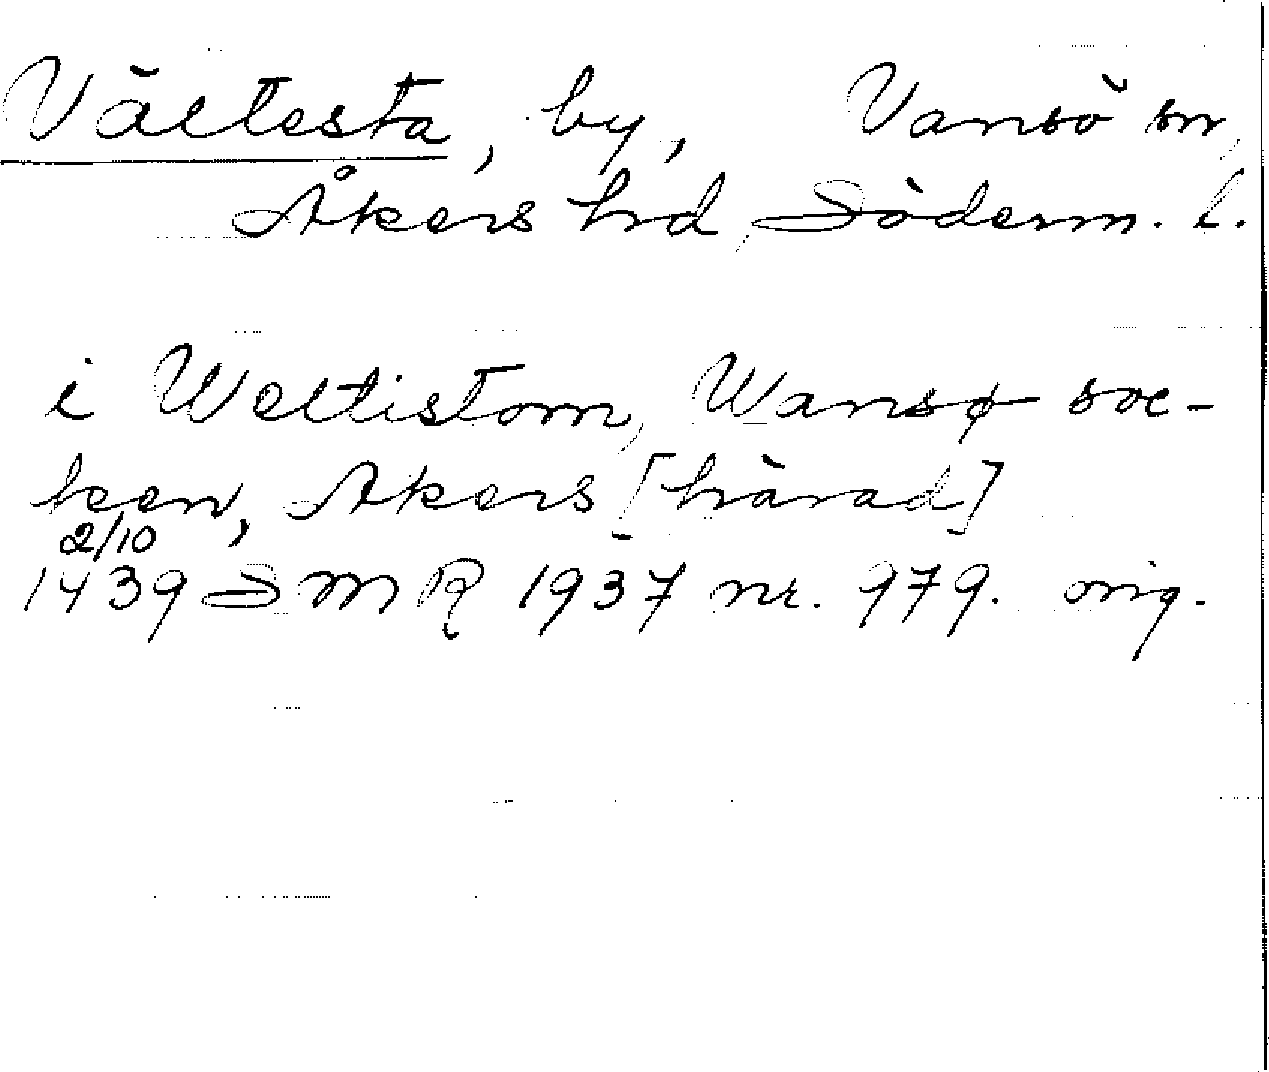 Vältesta, by, Vansö sn,
Åkers hd, Söderm. l.
i Weltistom, Wansø soc-
ken, Akers [härad]
2/10
1439 SMR 1937 nr. 979. orig.